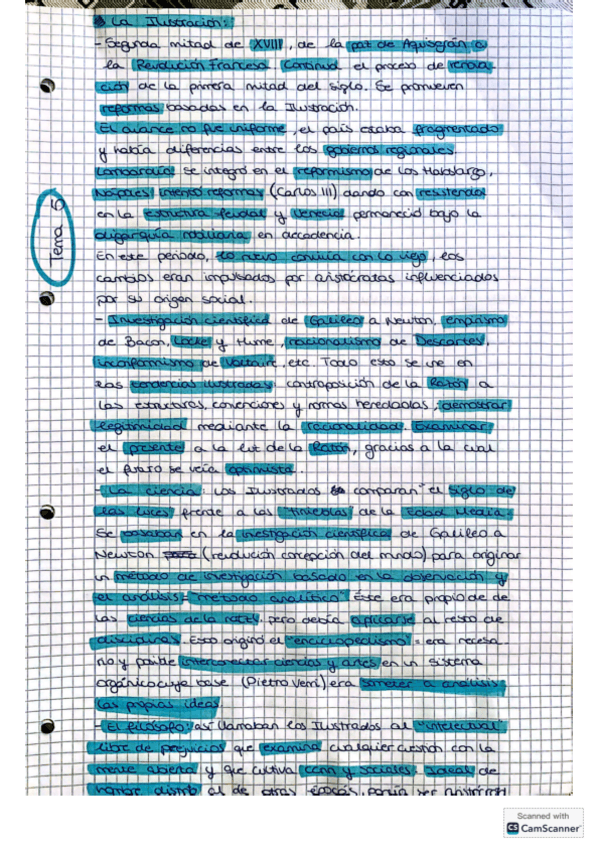 La Ilustración:
- Segunda mitad de XVIII, de la paz de Aquisgrán a
la Revolución Francesa. Continuó el proceso de renova-
ción de la primera mitad del siglo. Se promueven
reformas basadas en la Ilustración.
El avance no fue uniforme, el país estaba fragmentado
y había diferencias entre los gobiernos regionales.
Lombardía se integró en el reformismo de los Habsburgo,
Nápoles intentó reformas (Carlos III) dando con resistencias
en la estructura feudal y Venecia permaneció bajo la
oligarquía nobiliaria en decadencia.
En este periodo, lo nuevo convivía con lo viejo, los
cambios eran impulsados por aristócratas influenciados
por su origen social.
- Investigación científica de Galileo a Newton, empirismo
de Bacon, Locke y Hume, racionalismo de Descartes,
inconformismo de Voltaire, etc. Todo esto se une en
las tendencias ilustradas: contraposición de la Razón a
las estructuras, convenciones y normas heredadas, demostrar
legitimidad mediante la racionalidad. Examinar
el presente a la luz de la Razón, gracias a la cual
el futuro se veía optimista.
- La ciencia: los Ilustrados comparan "el siglo de
las luces" frente a las "tinieblas" de la Edad Media.
Se basaban en la investigación científica de Galileo a
Newton (revolución concepción del mundo) para originar
un método de investigación basado en la observación y
el análisis = "método analítico". Este era propio de de
las ciencias de la nat. pero debía aplicarse al resto de
disciplinas. Esto originó el "enciclopedismo" = era necesa-
rio y posible interconectar ciencias y artes en un sistema
orgánico cuya base (Pietro Verri) era someter a análisis
las propias ideas.
- El filósofo: así llamaban los Ilustrados al "intelectual"
libre de prejuicios que examina cualquier cuestión con la
mente abierta y que cultiva y sociales. Ideal de
hombre distinto al de otras épocas, podía ser
Tema 5
Scanned with
CS CamScanner